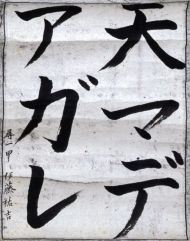 天マデ
アガレ
尋一甲 伊藤祐吉